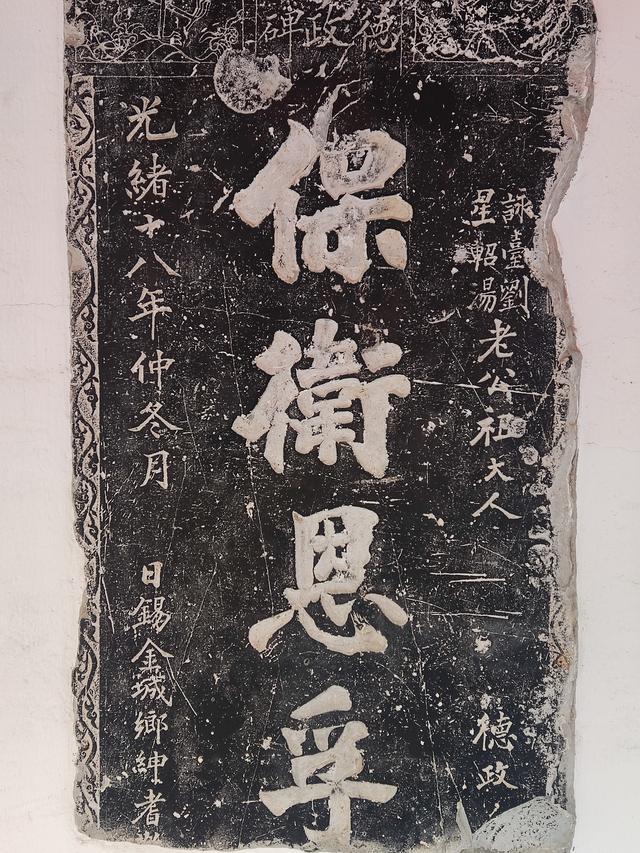 德政碑
詠臺劉
星軺湯
老公祖大人 德政
保衛恩孚
光緒十八年仲冬月 日錫金城鄉紳耆